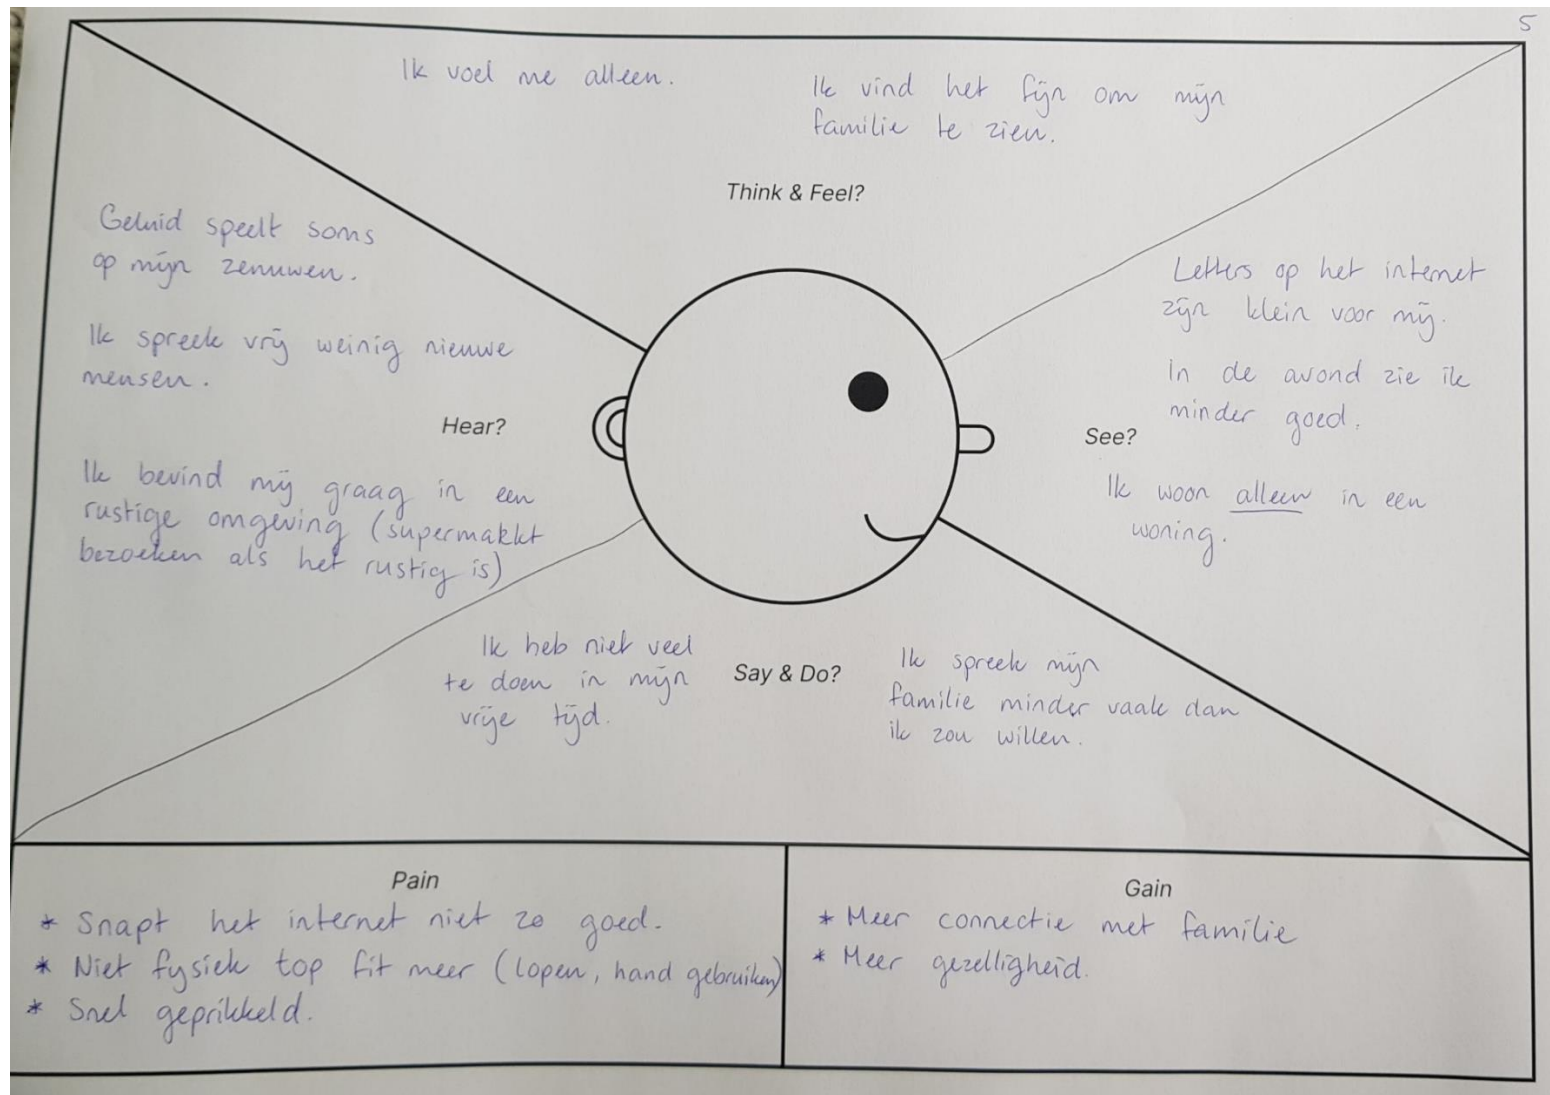 5
Ik voel me alleen.
Ik vind het fijn om mijn
familie te zien.
Think & Feel?
Geluid speelt soms
op mijn zenuwen.
Ik spreek vrij weinig nieuwe
mensen.
Hear?
Ik bevind mij graag in een
rustige omgeving (supermakkt
bezoeken als het rustig is)
Letters op het internet
zijn klein voor mij.
In de avond zie ik
minder goed.
See?
Ik woon alleen in een
woning.
Ik heb niet veel
te doen in mijn
vrije tijd.
Say & Do?
Ik spreek mijn
familie minder vaak dan
ik zou willen.
Pain
* Snapt het internet niet zo goed.
* Niet fysiek top fit meer (lopen, hand gebruiken)
* Snel geprikkeld.
Gain
* Meer connectie met familie
* Meer gezelligheid.